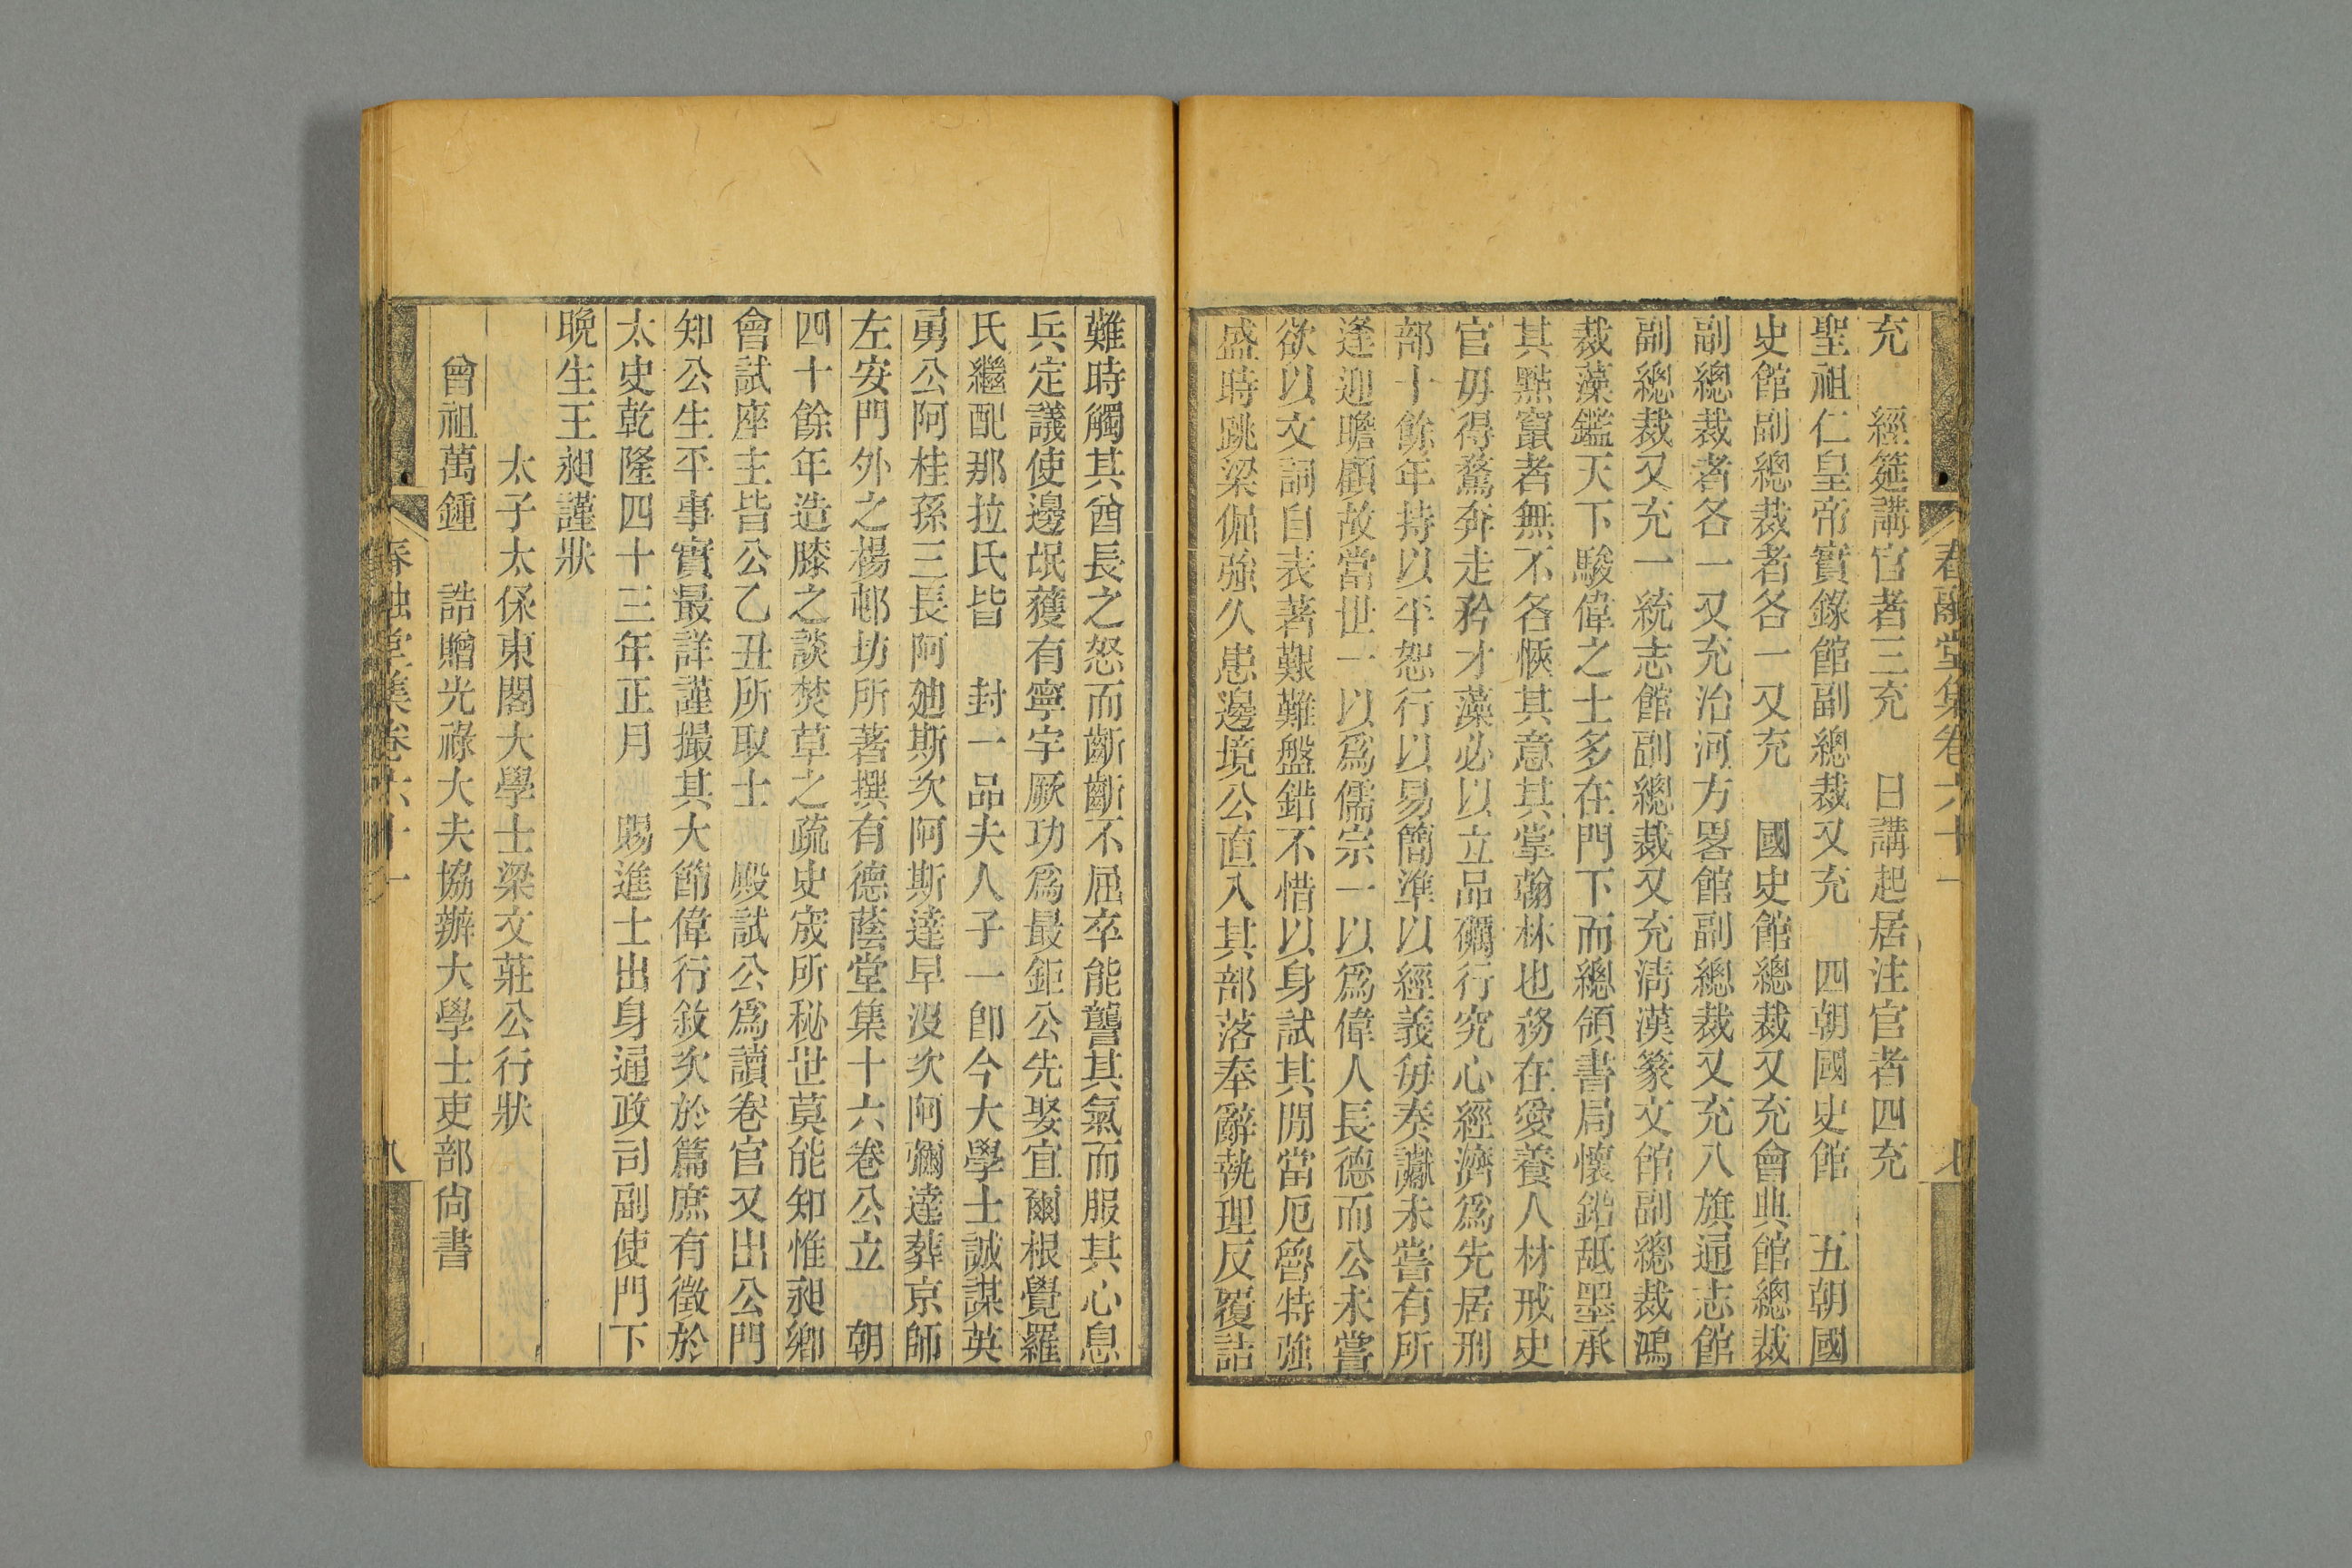 春融堂集卷六十一
充　經筵講官者三充　日講起居注官者四充
聖祖仁皇帝實錄館副總裁又充　四朝國史館　五朝國
史館副總裁者各一又充　國史館總裁又充會典館總裁
副總裁者各一又充治河方畧館副總裁又充八旗通志館
副總裁又充一統志館副總裁又充淸漢篆文館副總裁鴻
裁藻鑑天下駿偉之士多在門下而總領書局懷鉛舐墨承
其點竄者無不各愜其意其掌翰林也務在愛養人材戒史
官毋得騖奔走矜才藻必以立品礪行究心經濟爲先居刑
部十餘年持以平恕行以易簡準以經義每奏讞未嘗有所
逢迎瞻顧故當世一以爲儒宗一以爲偉人長德而公未嘗
欲以文詞自表著艱難盤錯不惜以身試其閒當厄魯特強
盛時跳梁倔強久患邊境公直入其部落奉辭執理反覆詰
難時觸其酋長之怒而齗齗不屈卒能讋其氣而服其心息
兵定議使邊氓蒦有寧宇厥功爲最鉅公先娶宜爾根覺羅
氏繼配那拉氏皆　封一品夫人子一卽今大學士誠謀英
勇公阿桂孫三長阿廸斯次阿斯達早沒次阿彌達葬京師
左安門外之楊邨坊所著撰有德蔭堂集十六卷公立　朝
四十餘年造膝之談焚草之疏史宬所秘世莫能知惟昶鄉
會試座主皆公乙丑所取士　殿試公爲讀卷官又出公門
知公生平事實最詳謹撮其大節偉行敘次於篇庶有徵於
太史乾隆四十三年正月　賜進士出身通政司副使門下
晚生王昶謹狀
太子太保東閣大學士梁文莊公行狀
曾祖萬鍾　誥贈光祿大夫協辦大學士吏部尙書
春融堂集卷六十一
八